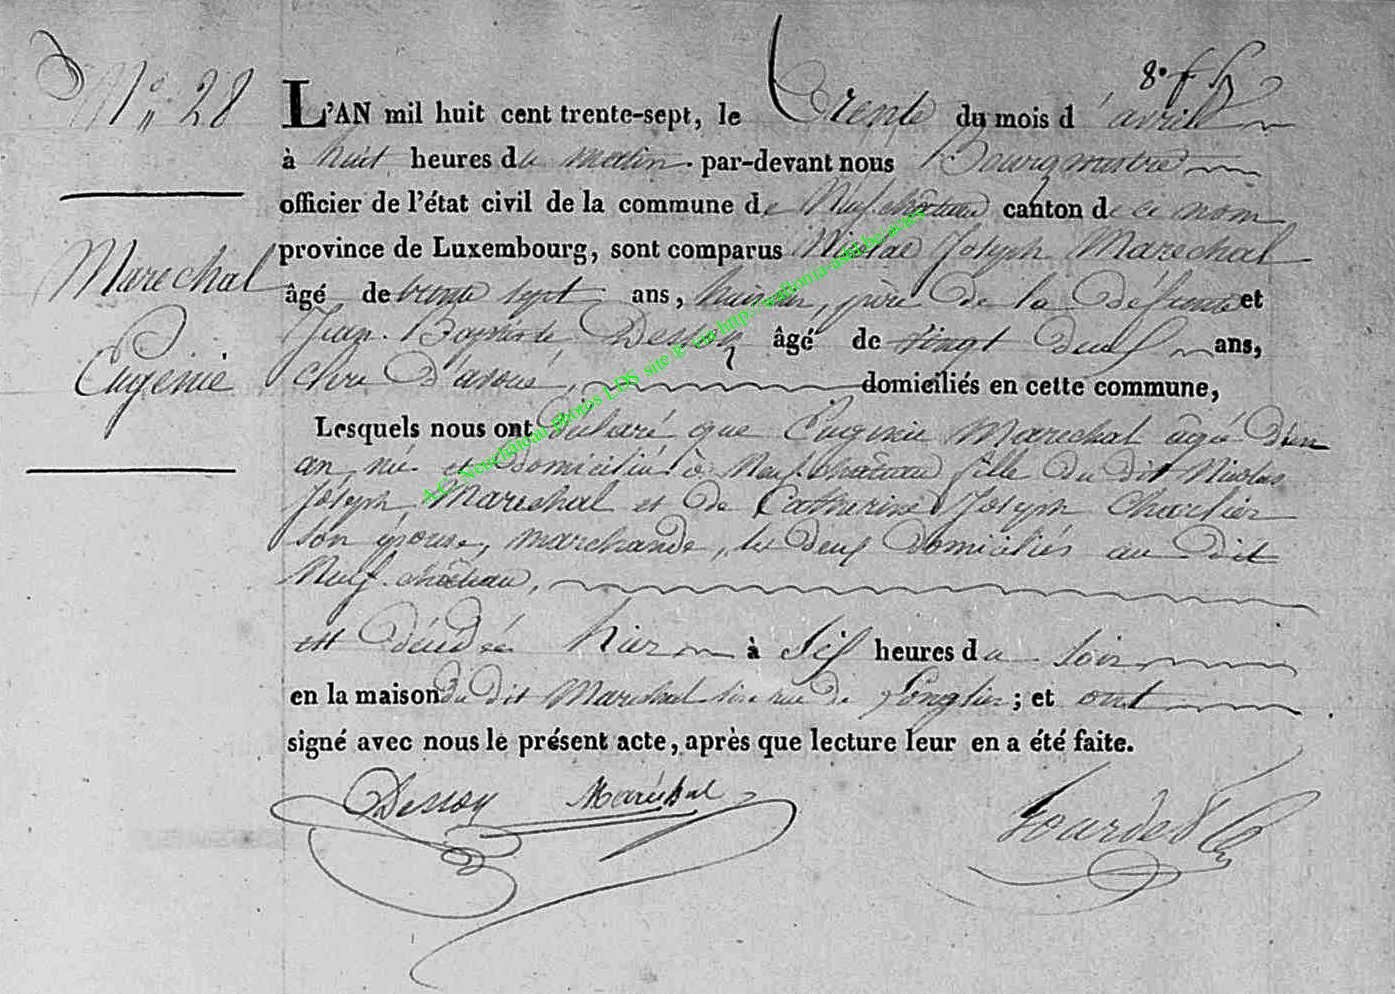 8.
N° 28
L'AN mil huit cent trente-sept, le trente du mois d'avril
à huit heures du matin par-devant nous Bourgmestre
officier de l'état civil de la commune de Neufchâteau canton de ce nom
province de Luxembourg, sont comparus Nicolas Joseph Marechal
Marechal
Eugénie
âgé de trente sept ans, huissier, père de la défunte et
Jean Baptiste Dessoy âgé de vingt deux ans,
clerc d'avoué, domiciliés en cette commune,
Lesquels nous ont déclaré que Eugénie Marechal agée d'un
an, née et domiciliée à Neufchâteau fille du dit Nicolas
Joseph Marechal et de Catherine Joseph Charlier
son épouse, marchande, les deux domiciliés au dit
Neufchâteau,
est décédée hier à six heures du soir
en la maison du dit Marechal sise rue de Longlier ; et ont
signé avec nous le présent acte, après que lecture leur en a été faite.
Dessoy Maréchal
A.C. Neufchâteau photos LDS site g via http://wallonia-asbl.be/actes